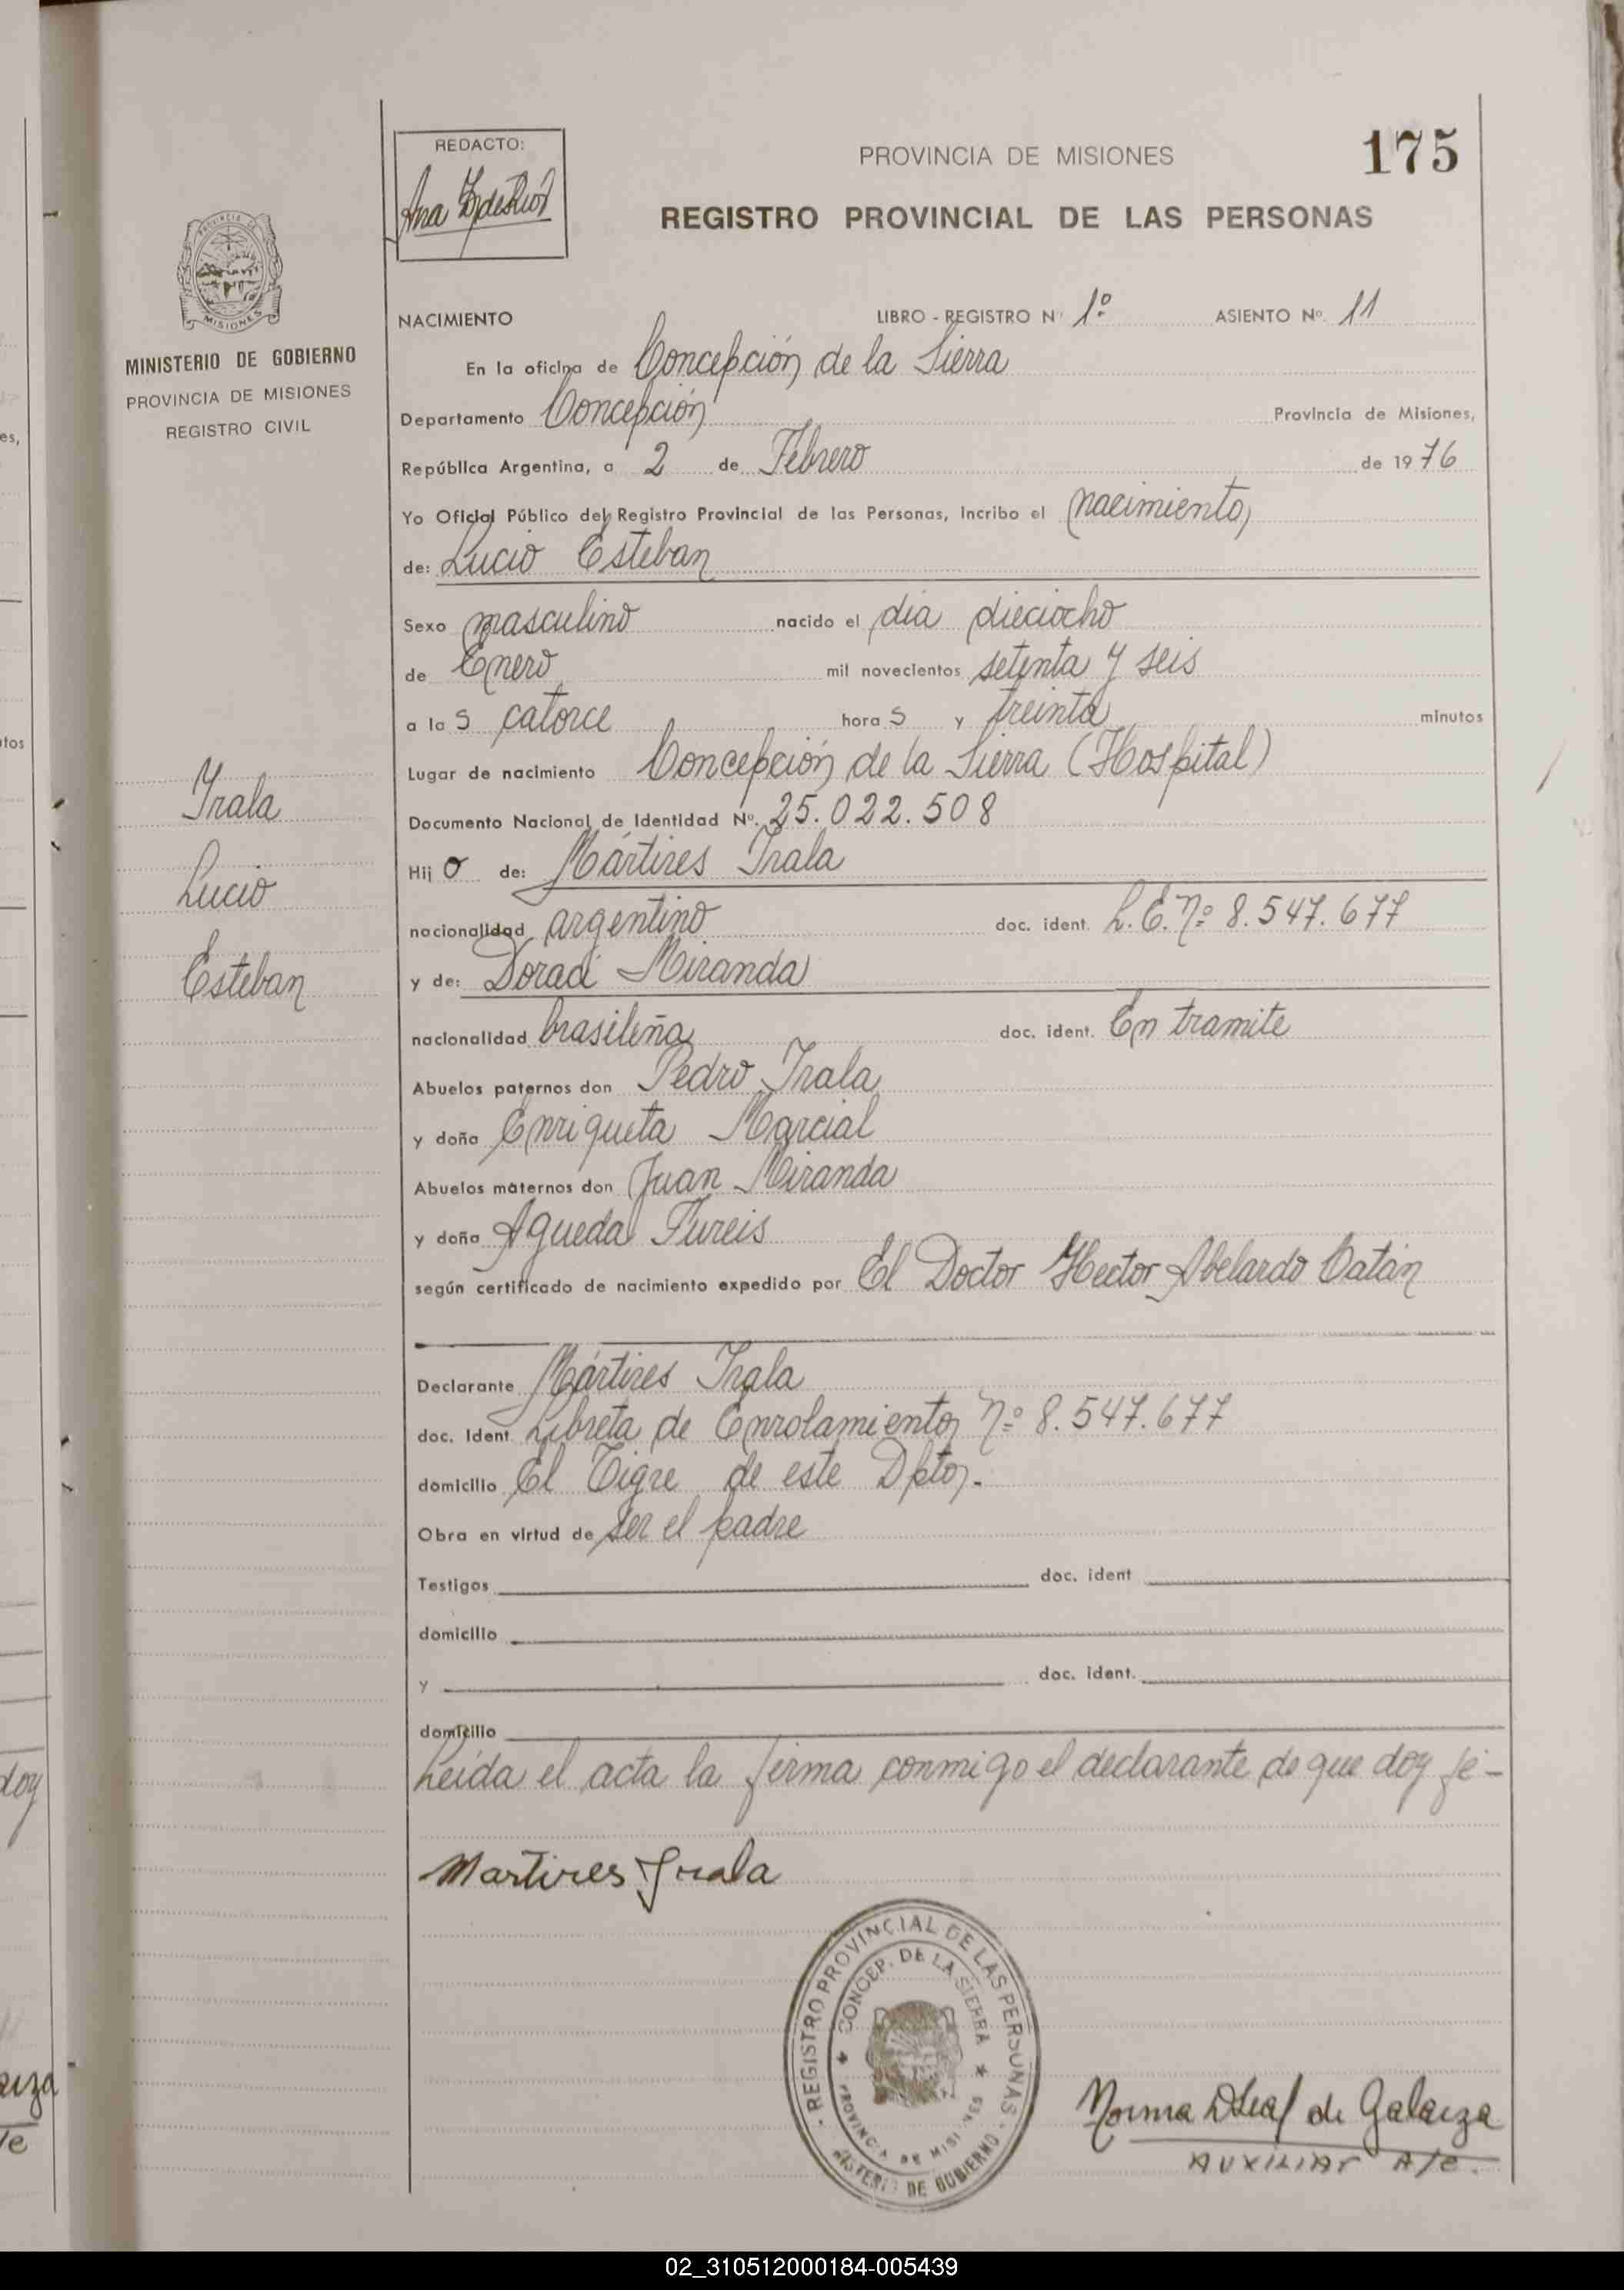 REDACTO:
Ana
PROVINCIA DE MISIONES
175
REGISTRO PROVINCIAL DE LAS PERSONAS
PROVINCIA
MISIONES
MINISTERIO DE GOBIERNO
PROVINCIA DE MISIONES
REGISTRO CIVIL
NACIMIENTO LIBRO - REGISTRO Nº 1º ASIENTO Nº 11
En la oficina de Concepción de la Sierra
Departamento Concepción Provincia de Misiones,
República Argentina, a 2 de Febrero de 1976
Yo Oficial Público del Registro Provincial de las Personas, incribo el nacimiento
de: Lucio Esteban
Sexo masculino nacido el día dieciocho
de Enero mil novecientos setenta y seis
a las catorce horas y treinta minutos
Lugar de nacimiento Concepción de la Sierra (Hospital)
Documento Nacional de Identidad Nº. 25.022.508
Hijo de: Mártires Irala
nacionalidad argentino doc. ident. L.E. Nº 8.547.677
y de: Doradi Miranda
nacionalidad brasileña doc. ident. En tramite
Abuelos paternos don Pedro Irala
y doña Enriqueta Marcial
Abuelos maternos don Juan Miranda
y doña Agueda Fureis
según certificado de nacimiento expedido por El Doctor Hector Abelardo Batán
Declarante Mártires Irala
doc. Ident. Libreta de Enrolamiento Nº 8.547.677
domicilio El Tigre de este Dpto.-
Obra en virtud de ser el padre
Testigos doc. ident
domicilio
y doc. ident.
domicilio
Leída el acta la firma conmigo el declarante de que doy fé-
Martires Irala
Irala
Lucio
Esteban
REGISTRO PROVINCIAL DE LAS PERSONAS
CONCEP. DE LA SIERRA
PROVINCIA DE MISIONES
MISTERIO DE GOBIERNO
Norma de Galarza
AUXILIAR A/C.
es,
utos
doy
arza
02_310512000184-005439